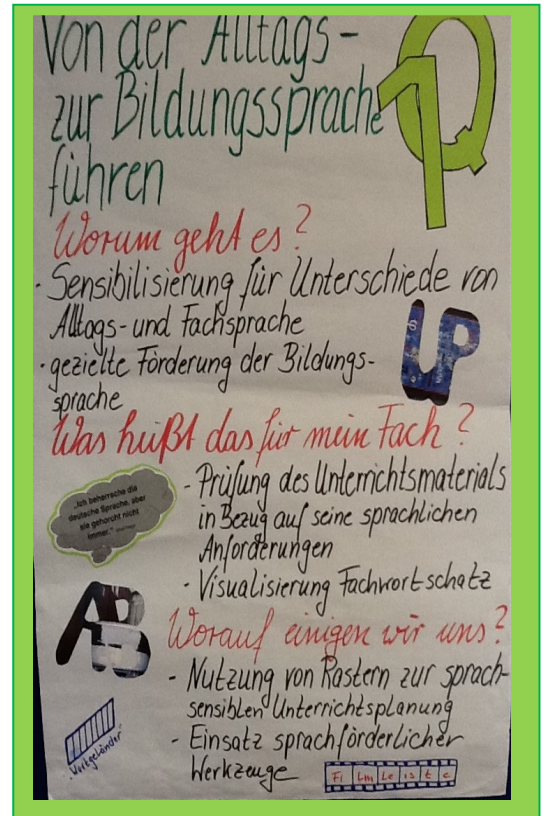 Von der Alltags-
zur Bildungssprache
führen
Q1
Worum geht es?
· Sensibilisierung für Unterschiede von
Alltags- und Fachsprache
· gezielte Förderung der Bildungs-
sprache
UP
Was heißt das für mein Fach?
„Ich beherrsche die
deutsche Sprache, aber
sie gehorcht nicht
immer."
- Prüfung des Unterrichtsmaterials
in Bezug auf seine sprachlichen
Anforderungen
- Visualisierung Fachwortschatz
AB
Worauf einigen wir uns?
- Nutzung von Rastern zur sprach-
sensiblen Unterrichtsplanung
- Einsatz sprachförderlicher
Werkzeuge
„Wortgeländer"
Filmleiste